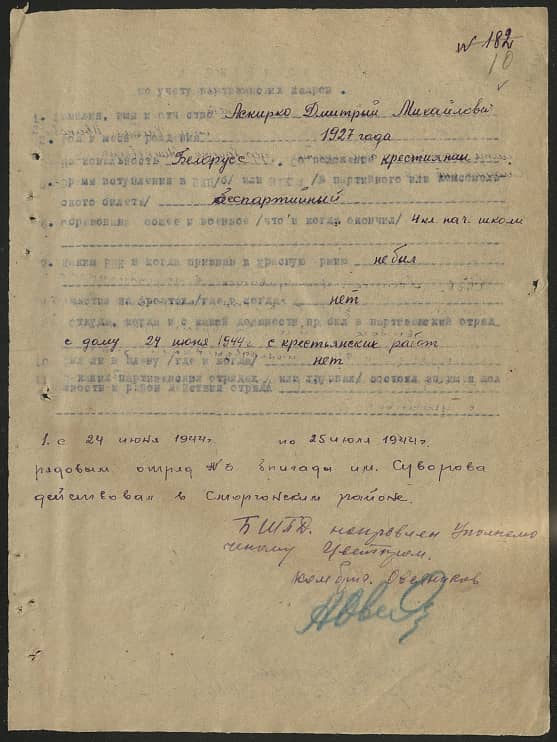 № 182
10
по учету партизанских кадров.
1. Фамилия, имя и отчество Аскирко Дмитрий Михайлов
2. Год и место рождения 1927 года
Национальность Белорусс соцположение крестиянин
Время вступления в ВКП/б/ или ВЛКСМ /№ партийного или комсомоль-
ского билета/ беспартийный
6. Образование общее и военное /что и когда окончил/ 4 кл нач. школи
Каким РВК и когда призван в Красную армию не был
Участие на фронтах /где и когда/ нет
Откуда, когда и с какой должности прибыл в партизанский отряд
с дому 24 июня 1944г с крестьянских работ
10 был ли в плену /где и когда/ нет
11 в каких партизанских отрядах или группах/ состоял
и район действий отряда
1. с 24 июня 1944г. по 25 июля 1944г.
рядовым отряд № 3 бригады им. Суворова
действовал в Сморгонским районе.
БШПД. направлен
комбриг. Овсянников